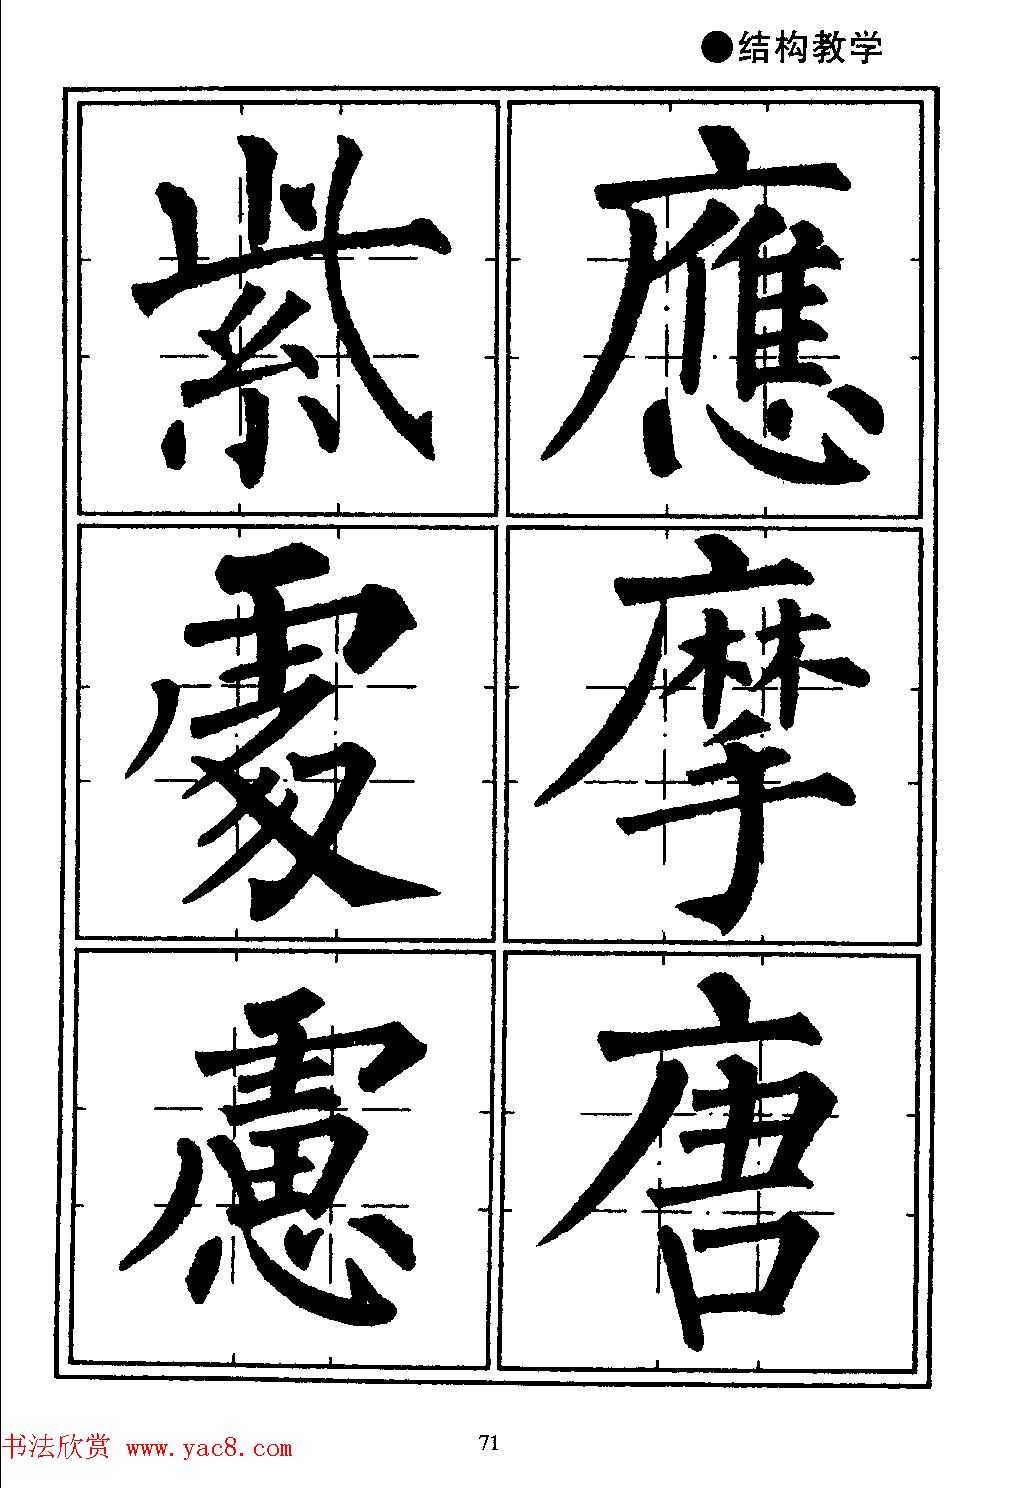 ●结构教学
應摩唐
紫處慮
71
书法欣赏 www.yac8.com